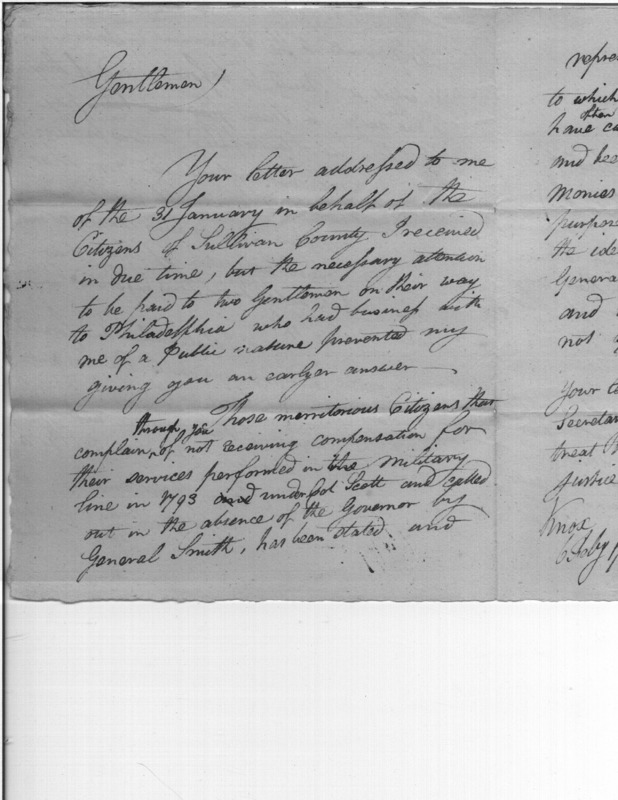 Gentlemen,
Your letter addressed to me
of the 31 January in behalf of the
Citizens of Sullivan County I received
in due time, but the necessary attention
to be paid to two Gentlemen on their way
to Philadelphia who had business with
me of a Public nature prevented my
giving you an earlyer answer
Those merritorious Citizens that
through you
complain, of not receiving compensation for
their services performed in the military
line in 1793 and under Col Scott and called
out in the absence of the Governor by
General Smith, has been stated and
repre
to which
often
have ca
and
Monies
purpose
the ide
General
and
not
Your
Secretar
treat
Justice
Knox